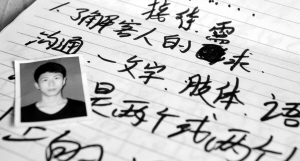 接待需
1.了解客人的求
沟通.一文字.肢体.语
是两个或两个
上的